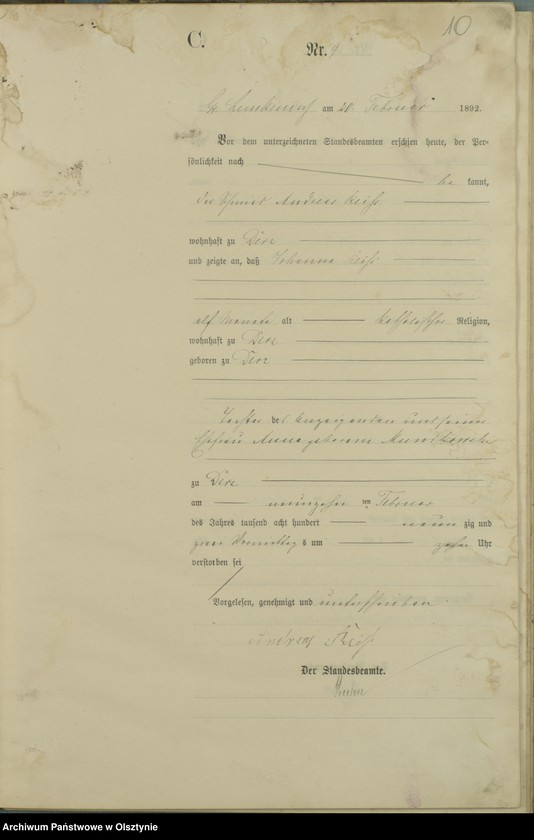 10
C.
Nr. 9
am 20. Februar 1892.
Vor dem unterzeichneten Standesbeamten erschien heute, der Per-
sönlichkeit nach
be kannt,
Andreas
wohnhaft zu Derz
und zeigte an, daß Johanna
elf Monate alt katholischer Religion,
wohnhaft zu Derz
geboren zu Derz
Tochter des Anzeigenden und seiner
Ehefrau Anna geborenen
zu Derz
am neunzehn ten Februar
des Jahres tausend acht hundert neun zig und
zwei Vormittag s um zehn Uhr
verstorben sei
Vorgelesen, genehmigt und unterschrieben
Andreas
Der Standesbeamte.
Archiwum Państwowe w Olsztynie